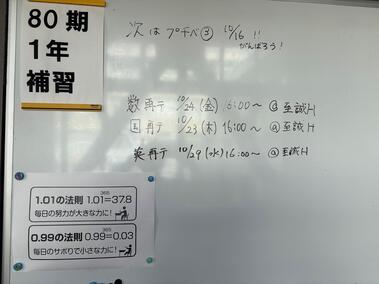 80期
1年
補習
次は プチベ③ 10/16 !!
がんばろう!
数再テ 10/24(金) 16:00~ @至誠H
国再テ 10/23(木) 16:00~ @至誠H
英再テ 10/29(水) 16:00~ @至誠H
1.01の法則 1.01³⁶⁵=37.8
毎日の努力が大きな力に!
0.99の法則 0.99³⁶⁵=0.03
毎日のサボりで小さな力に!